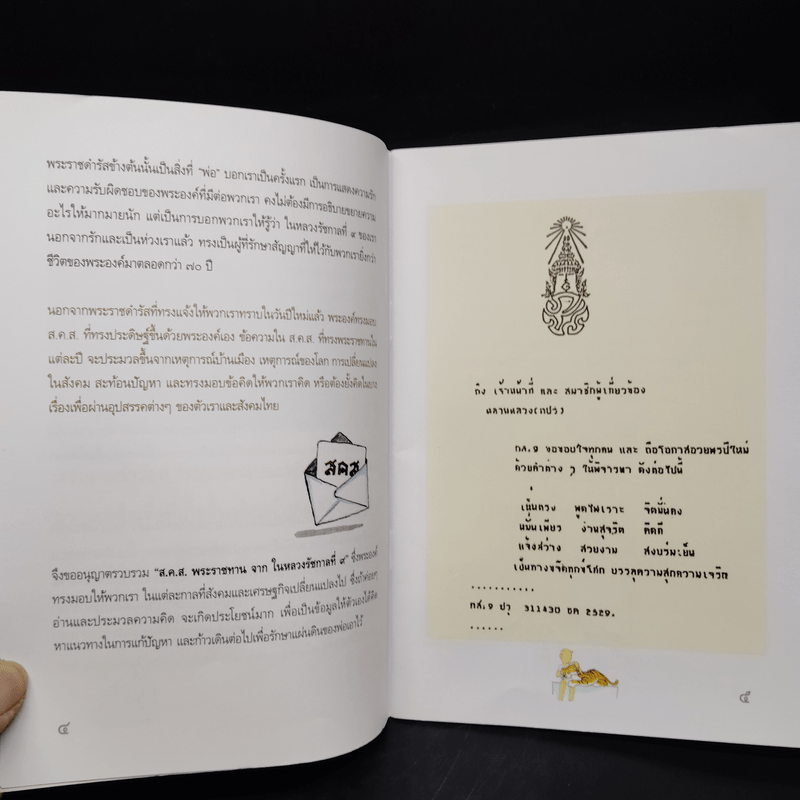 พระราชดำรัสข้างต้นนั้นเป็นสิ่งที่ "พ่อ" บอกเราเป็นครั้งแรก เป็นการแสดงความรัก
และความรับผิดชอบของพระองค์ที่มีต่อพวกเรา คงไม่ต้องมีการอธิบายขยายความ
อะไรให้มากมายนัก แต่เป็นการบอกพวกเราให้รู้ว่า ในหลวงรัชกาลที่ ๙ ของเรา
นอกจากรักและเป็นห่วงเราแล้ว ทรงเป็นผู้ที่รักษาสัญญาที่ให้ไว้กับพวกเรายิ่งกว่า
ชีวิตของพระองค์มาตลอดกว่า ๗๐ ปี
นอกจากพระราชดำรัสที่ทรงแจ้งให้พวกเราทราบในวันปีใหม่แล้ว พระองค์ทรงมอบ
ส.ค.ส. ที่ทรงประดิษฐ์ขึ้นด้วยพระองค์เอง ข้อความใน ส.ค.ส. ที่ทรงพระราชทานใน
แต่ละปี จะประมวลขึ้นจากเหตุการณ์บ้านเมือง เหตุการณ์ของโลก การเปลี่ยนแปลง
ในสังคม สะท้อนปัญหา และทรงมอบข้อคิดให้พวกเราคิด หรือต้องยั้งคิดในบาง
เรื่องเพื่อผ่านอุปสรรคต่างๆ ของตัวเราและสังคมไทย
สคส
จึงขออนุญาตรวบรวม "ส.ค.ส. พระราชทาน จาก ในหลวงรัชกาลที่ ๙" ซึ่งพระองค์
ทรงมอบให้พวกเรา ในแต่ละกาลที่สังคมและเศรษฐกิจเปลี่ยนแปลงไป ซึ่งถ้าค่อยๆ
อ่านและประมวลความคิด จะเกิดประโยชน์มาก เพื่อเป็นข้อมูลให้ตัวเองได้คิด
หาแนวทางในการแก้ปัญหา และก้าวเดินต่อไปเพื่อรักษาแผ่นดินของพ่อเอาไว้
๔
ถึง เจ้าหน้าที่ และ สมาชิกผู้เกี่ยวข้อง
กส.9 ขอขอบใจทุกคน และ ถือโอกาสอวยพรปีใหม่
ด้วยคำต่าง ๆ ให้พิจารณา ดังต่อไปนี้
เน้นตรง พูดไพเราะ จิตมั่นคง
หมั่นเพียร งานสุจริต คิดดี
แจ้งสว่าง สวยงาม สงบร่มเย็น
เป็นทางขจัดทุกข์โศก บรรลุความสุขความเจริญ
...........
กส.9 ปรุ 311430 ธค 2529.
......
๕